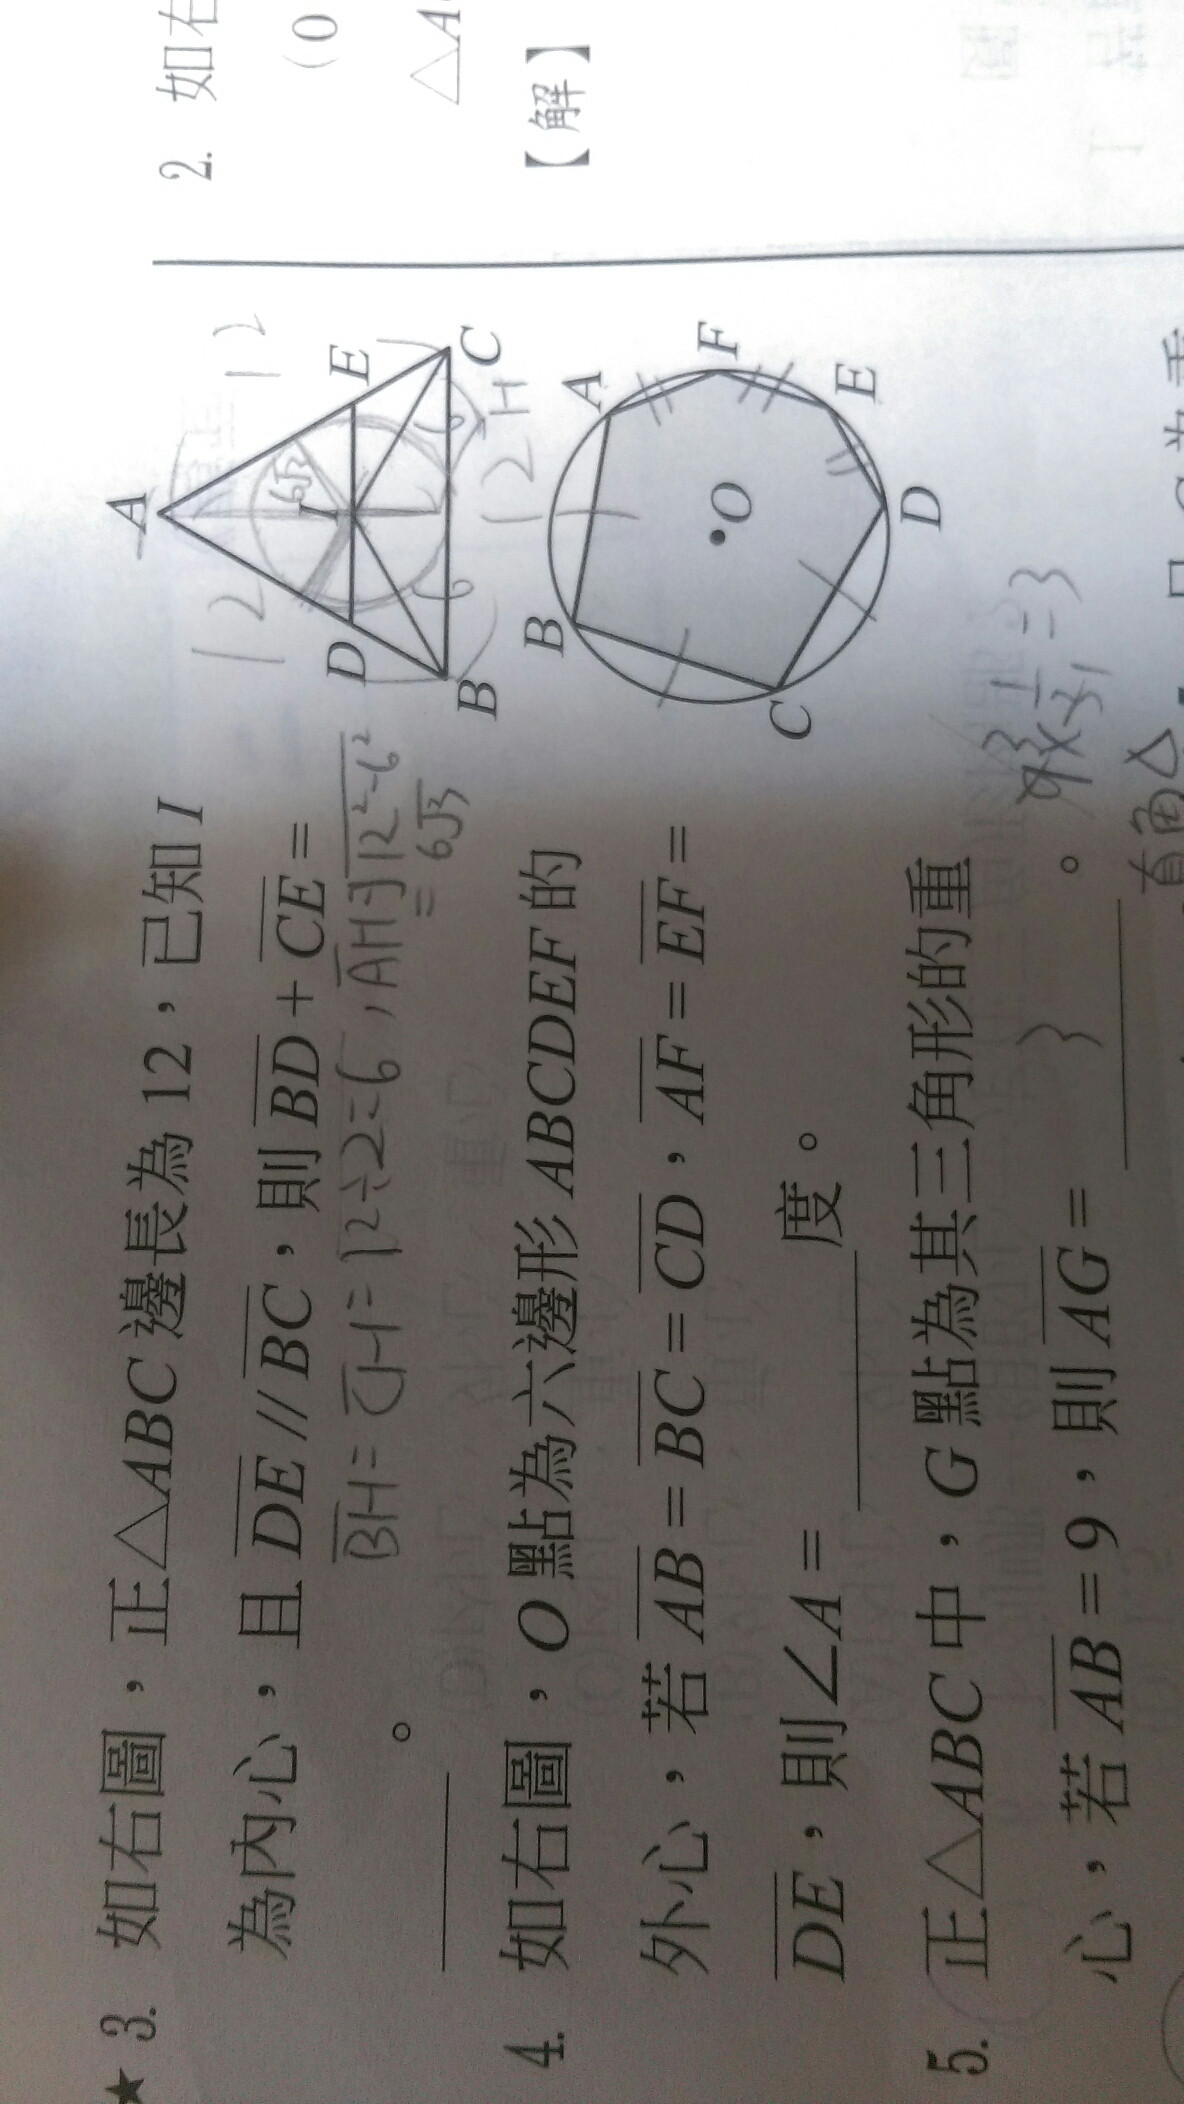 2. 如右
(0
△A
【解】
★ 3. 如右圖，正△ABC 邊長為 12，已知 I
為內心，且 DE // BC，則 BD + CE =
BH = CH = 12÷2=6，AH=√12²-6²
= 6√3
。
A
12
12
6√3
D
I
E
B
6
6
C
12
H
4. 如右圖，O 點為六邊形 ABCDEF 的
外心，若 AB = BC = CD，AF = EF =
DE，則∠A = 度。
A
B
C
D
E
F
O
5. 正△ABC 中，G 點為其三角形的重
心，若 AB = 9，則 AG = 。
3
直角△